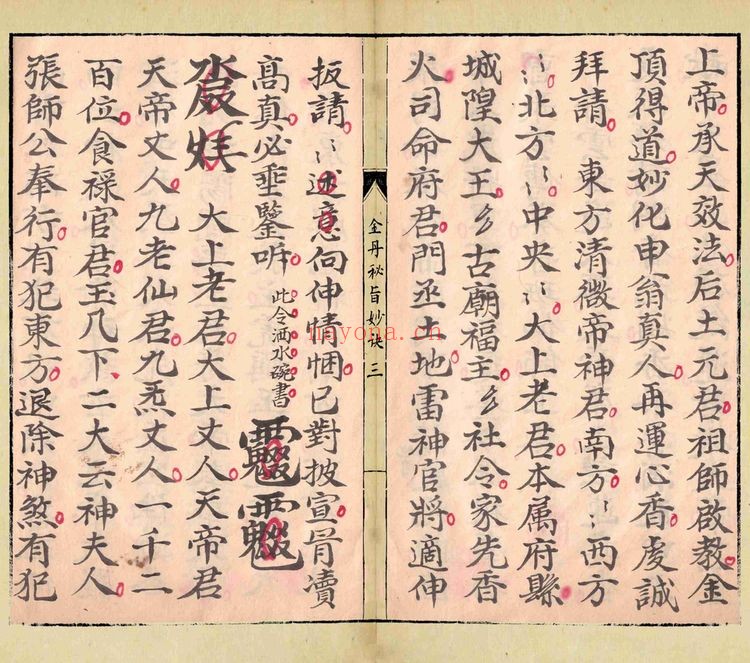 上帝承天效法后土元君祖師啟教金
頂得道妙化申翁真人再運心香虔誠
拜請 東方清微帝神君南方〻西方
〻北方〻中央〻大上老君本属府縣
城隍大王乡古廟福主乡社令家先香
火司命府君門丞土地雷神官將適伸
金丹秘旨妙诀 三
扳請〻述意向伸情悃已對披宣冐凟
高真必垂鑒听 此令洒水碗書
大上老君大上丈人天帝君
天帝丈人九老仙君九炁丈人一千二
百位食祿官君玉几下二大云神夫人
張師公奉行有犯東方退除神煞有犯
nayona.cn